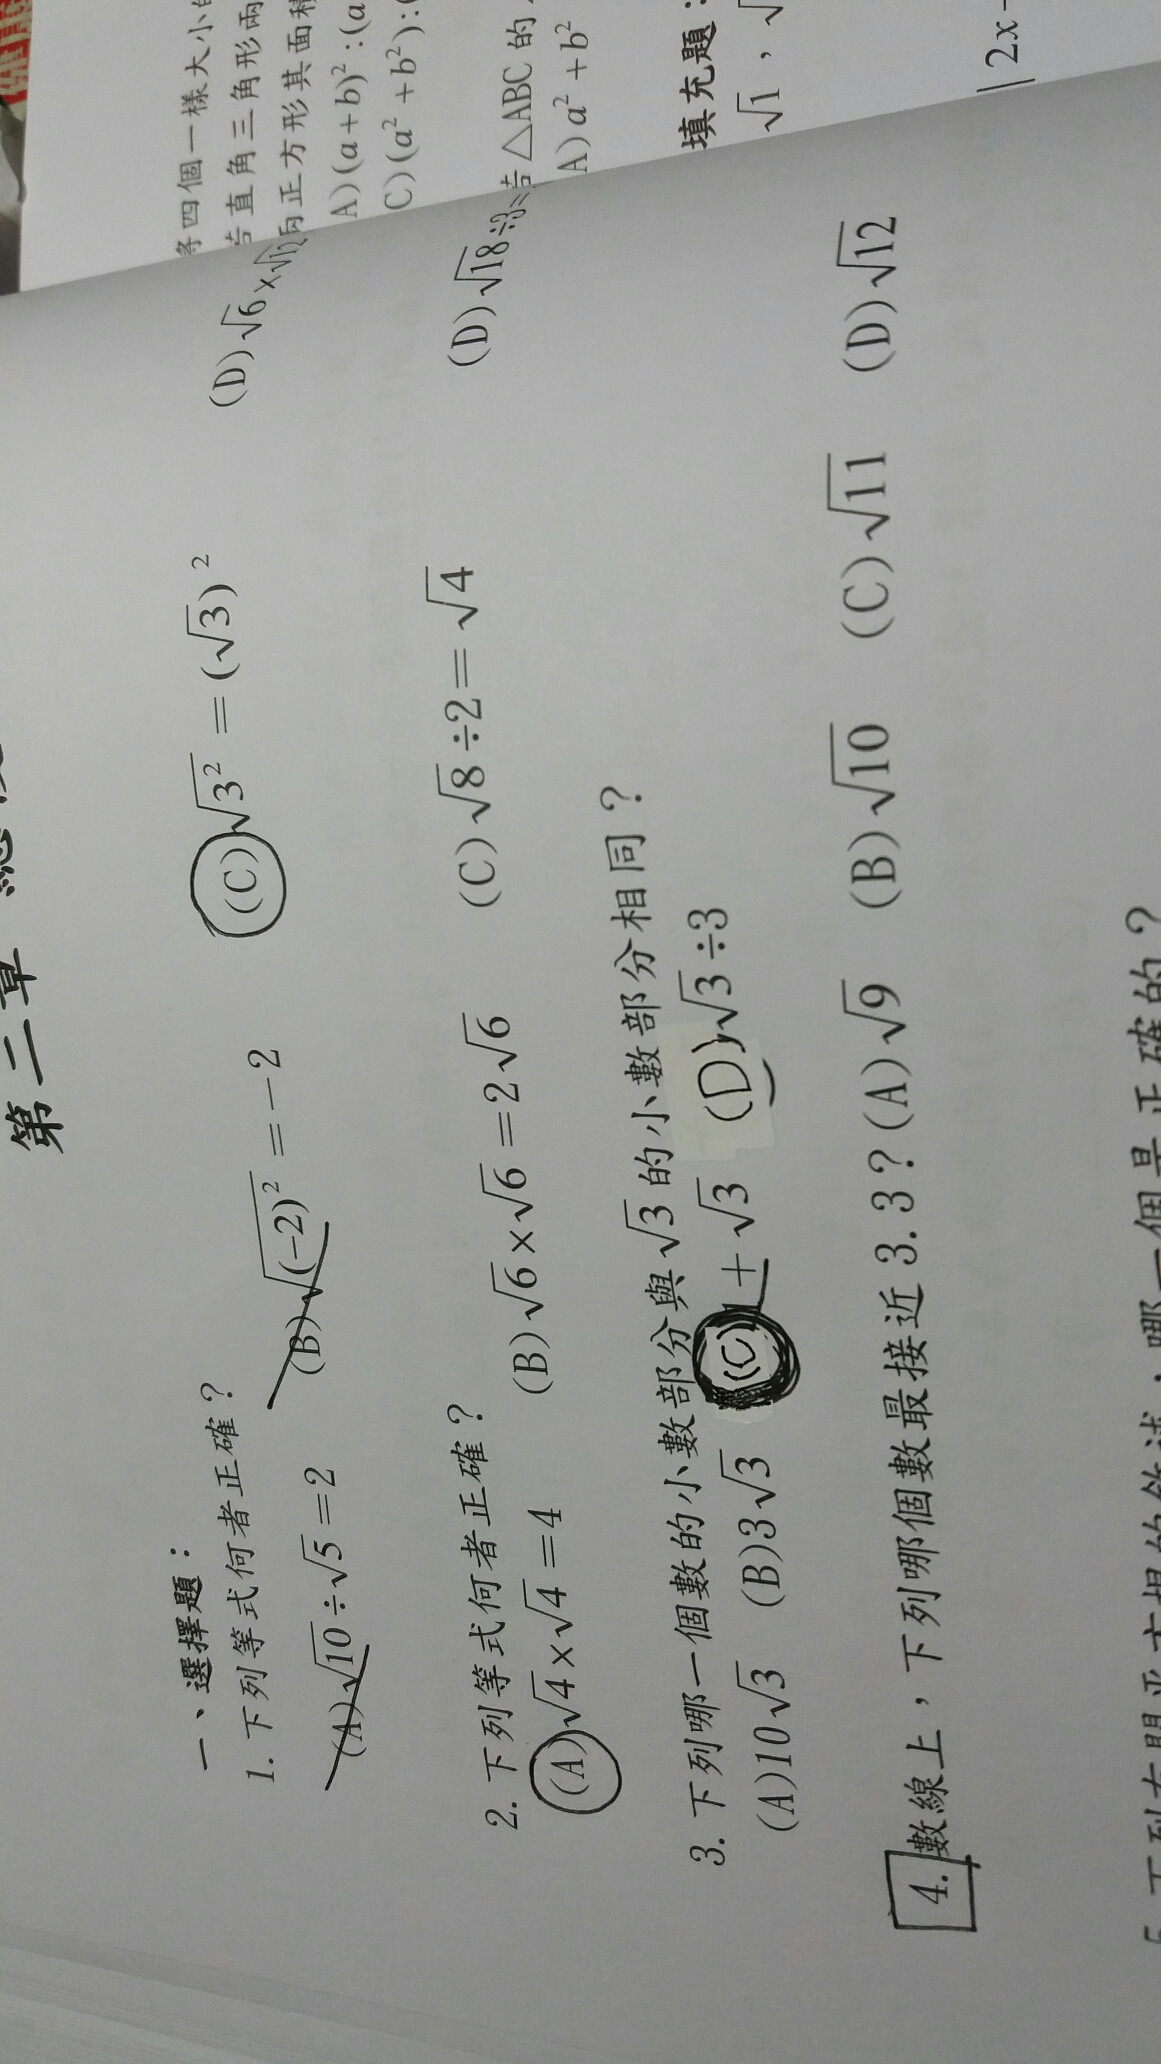 第二章
一、選擇題：
1. 下列等式何者正確？
(A)√10÷√5=2 (B)√(-2)²=-2 (C)√3²=(√3)² (D)√6×√12
2. 下列等式何者正確？
(A)√4×√4=4 (B)√6×√6=2√6 (C)√8÷2=√4 (D)√18÷3=
3. 下列哪一個數的小數部分與√3的小數部分相同？
(A)10√3 (B)3√3 (C)1+√3 (D)√3÷3
4. 數線上，下列哪個數最接近3.3？(A)√9 (B)√10 (C)√11 (D)√12
5. 下列有關平方根的敘述，哪一個是正確的？
將四個一樣大小的
若直角三角形兩
兩正方形其面積
A)(a+b)²:(a
C)(a²+b²):(
若△ABC的
A)a²+b²
填充題：
√1，√
|2x-